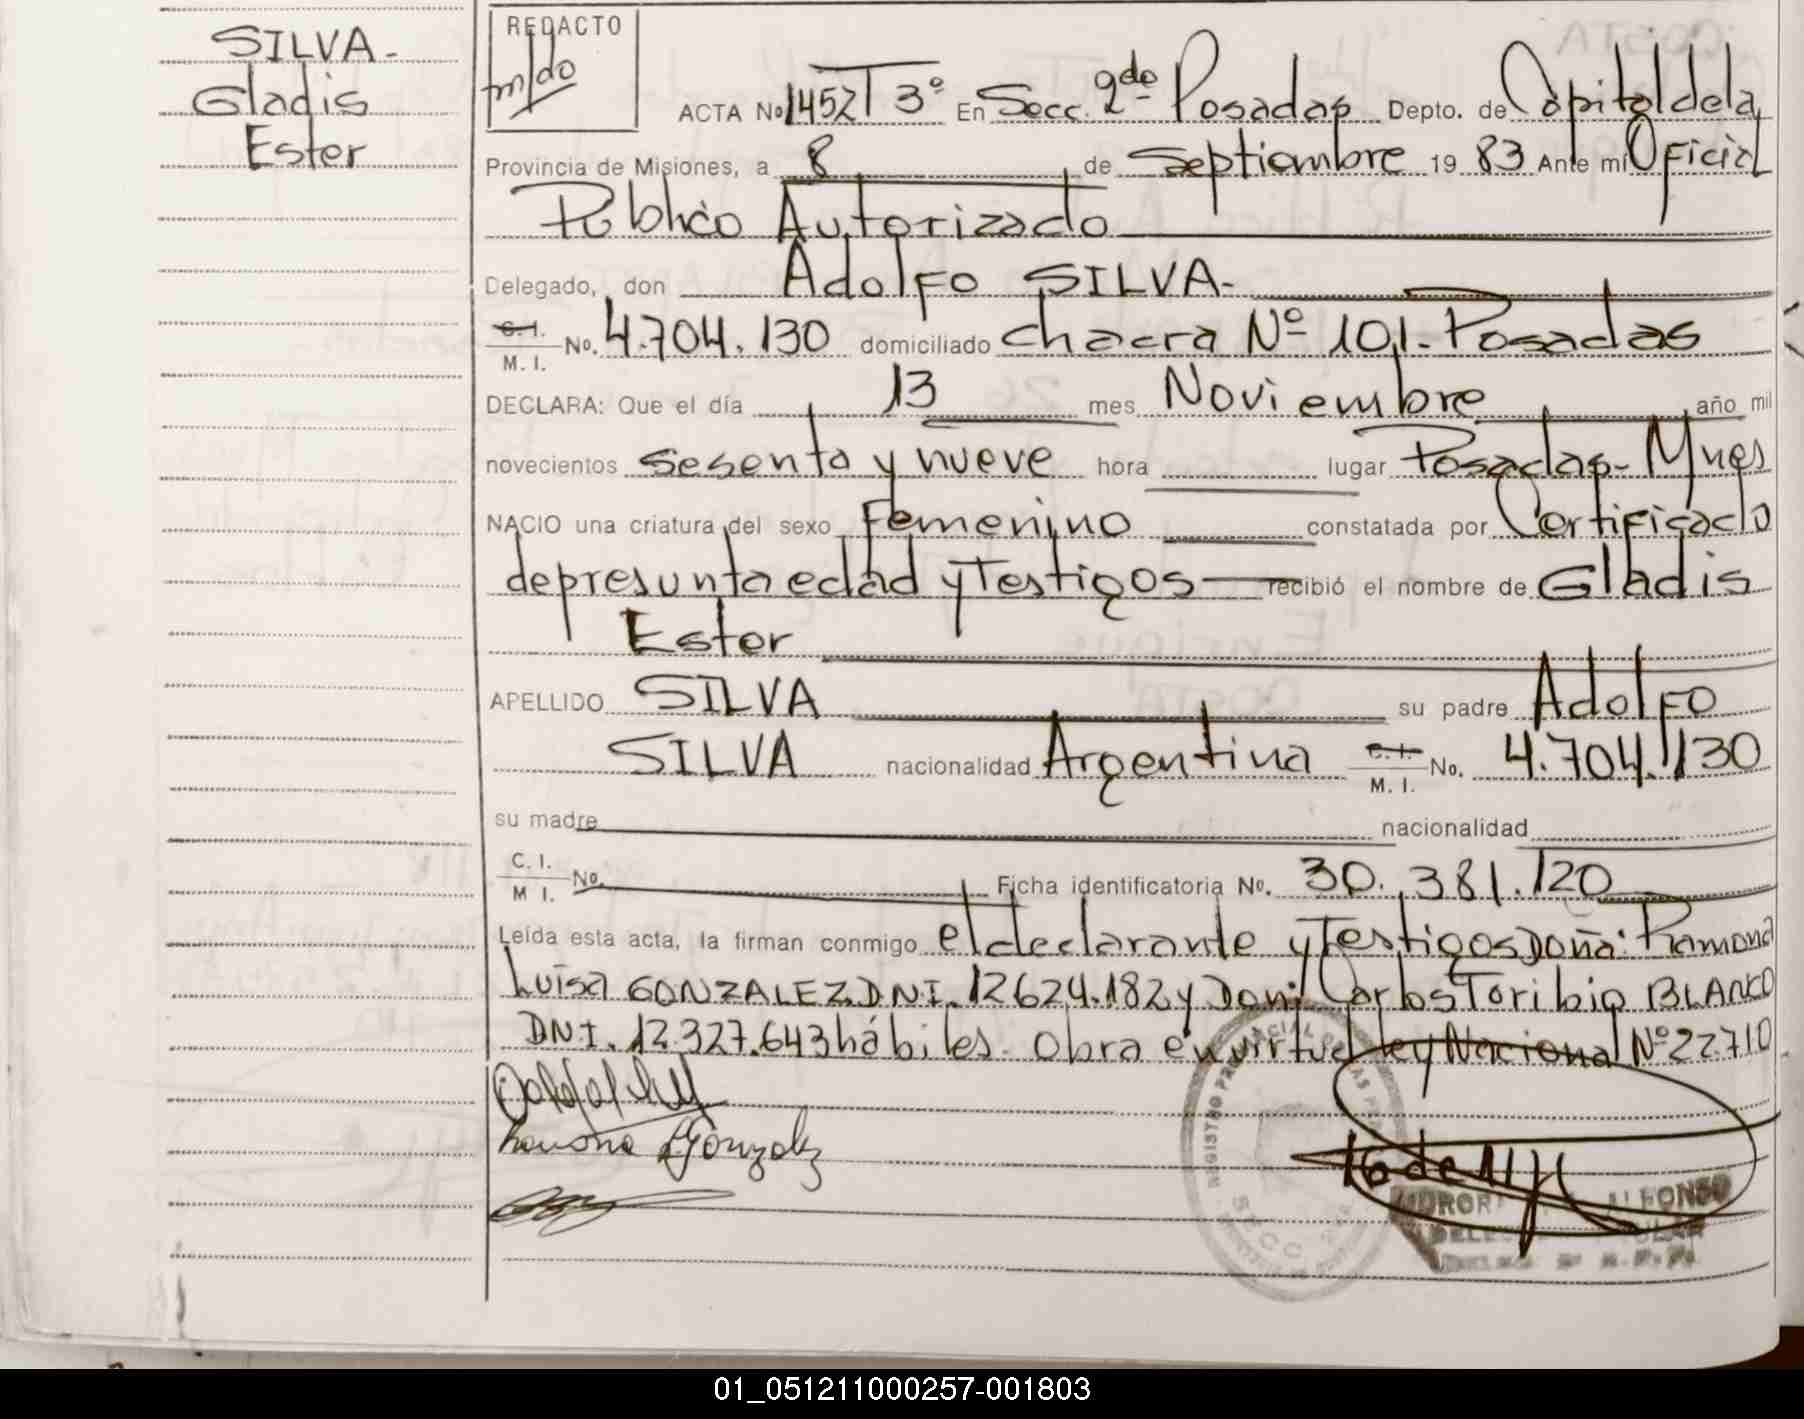 SILVA-
Gladis
Ester
REDACTO
ACTA No 1452 T 3º En Secc. 2da Posadas Depto. de Capital de la
Provincia de Misiones, a 8 de Septiembre 19 83 Ante mí Oficial
Público Autorizado
Delegado, don Adolfo SILVA-
C. I.
M. I.
No. 4.704.130 domiciliado chacra Nº 101. Posadas
DECLARA: Que el día 13 mes Noviembre año mil
novecientos sesenta y nueve hora lugar Posadas- Mnes
NACIO una criatura del sexo Femenino constatada por Certificado
de presunta edad y Testigos recibió el nombre de Gladis
Ester
APELLIDO SILVA su padre Adolfo
SILVA nacionalidad Argentina C. I. M. I. No. 4.704.130
su madre nacionalidad
C. I.
M I.
No. Ficha identificatoria No. 30.381.120
Leída esta acta, la firman conmigo el declarante y Testigos Doña: Ramona
Luisa GONZALEZ DNI. 12624.182 y Don: Carlos Toribio BLANCO
DNI. 12.327.643 hábiles. Obra en virtud ley Nacional Nº 22.710
Ramona L Gonzalez
ALFONSO
01_051211000257-001803